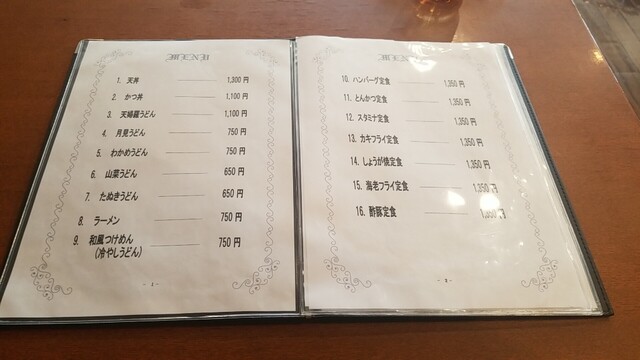 MENU
1. 天丼 1,300円
2. かつ丼 1,100円
3. 天婦羅うどん 1,100円
4. 月見うどん 750円
5. わかめうどん 750円
6. 山菜うどん 650円
7. たぬきうどん 650円
8. ラーメン 750円
9. 和風つけめん 750円
(冷やしうどん)
- 1 -
MENU
10. ハンバーグ定食 1,350円
11. とんかつ定食 1,350円
12. スタミナ定食 1,350円
13. カキフライ定食 1,350円
14. しょうが焼定食 1,350円
15. 海老フライ定食 1,350円
16. 酢豚定食 1,350円